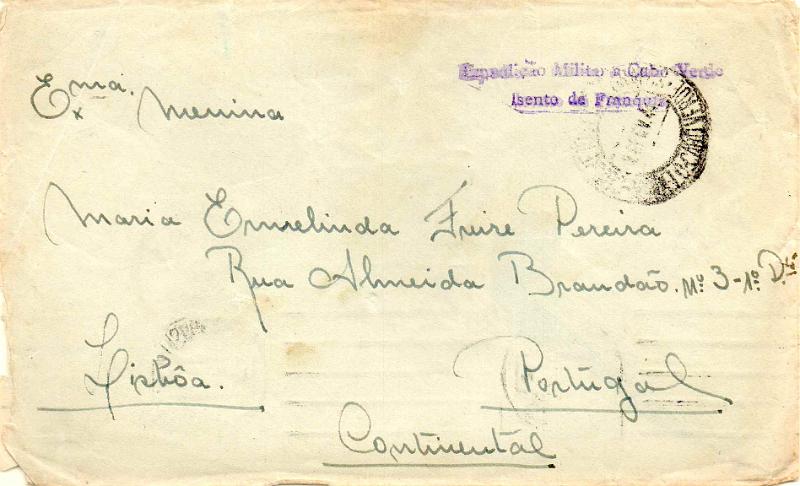 Expedição Militar a Cabo Verde
Isento de Franquia
Exma. Menina
Maria Ermelinda Freire Pereira
Rua Almeida Brandão. Nº 3-1º Dtº
Lisbôa.
Portugal
Continental